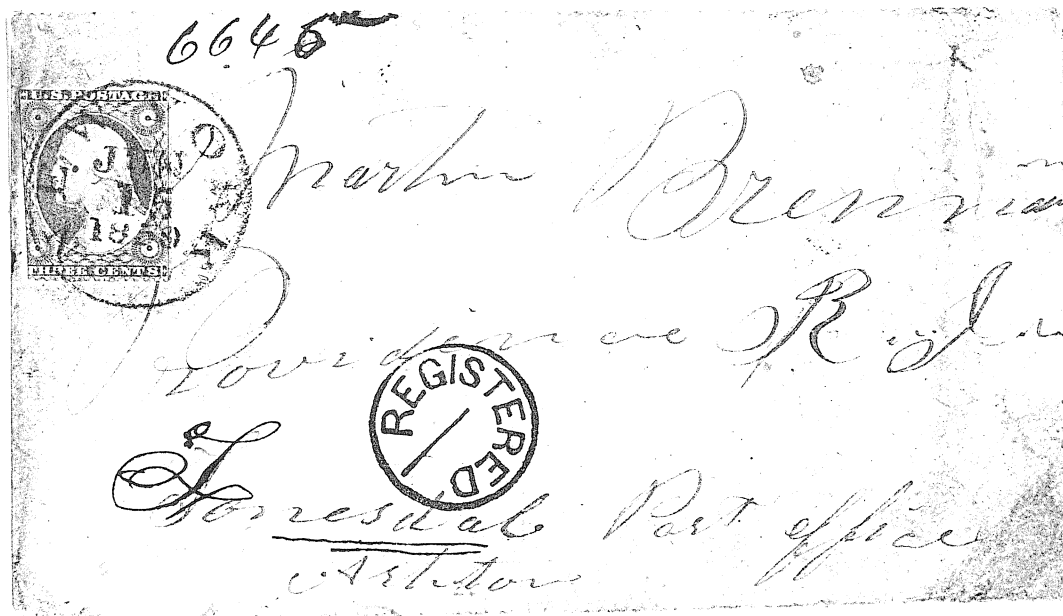 6645
U.S. POSTAGE
THREE CENTS
Martin Brennan
Providence R. I
REGISTERED
Lonesdale Post office
Ashton